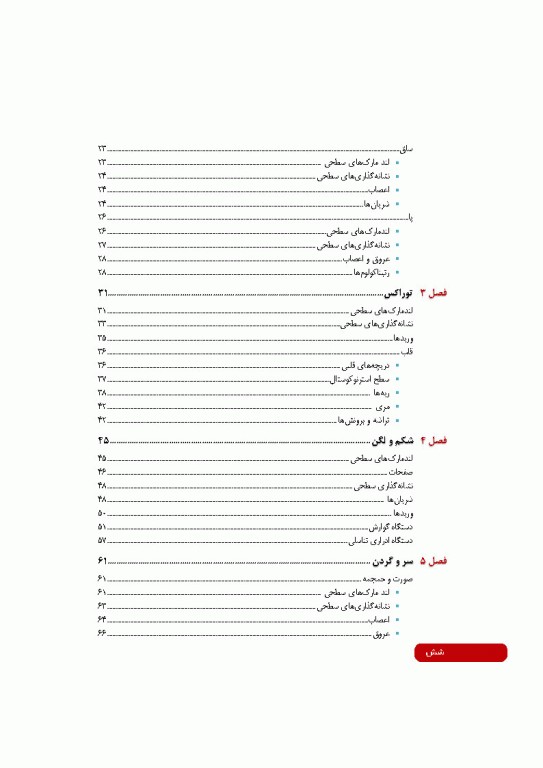 ساق ۲۳
• لند مارک‌های سطحی ۲۳
• نشانه‌گذاری‌های سطحی ۲۴
• اعصاب ۲۴
• شریان‌ها ۲۴
پا ۲۶
• لندمارک‌های سطحی ۲۶
• نشانه‌گذاری‌های سطحی ۲۷
• عروق و اعصاب ۲۸
• رتیناکولوم‌ها ۲۸
فصل ۳ توراکس ۳۱
لندمارک‌های سطحی ۳۱
نشانه‌گذاری‌های سطحی ۳۳
وریدها ۳۵
قلب ۳۶
• دریچه‌های قلبی ۳۶
• سطح استرنوکوستال ۳۷
• ریه‌ها ۳۸
• مری ۴۲
• تراشه و برونش‌ها ۴۲
فصل ۴ شکم و لگن ۴۵
لندمارک‌های سطحی ۴۵
صفحات ۴۶
نشانه‌گذاری سطحی ۴۸
شریان‌ها ۴۸
وریدها ۵۰
دستگاه گوارش ۵۱
دستگاه ادراری تناسلی ۵۷
فصل ۵ سر و گردن ۶۱
صورت و جمجمه ۶۱
• لند مارک‌های سطحی ۶۱
• نشانه‌گذاری‌های سطحی ۶۳
• اعصاب ۶۴
• عروق ۶۶
شش